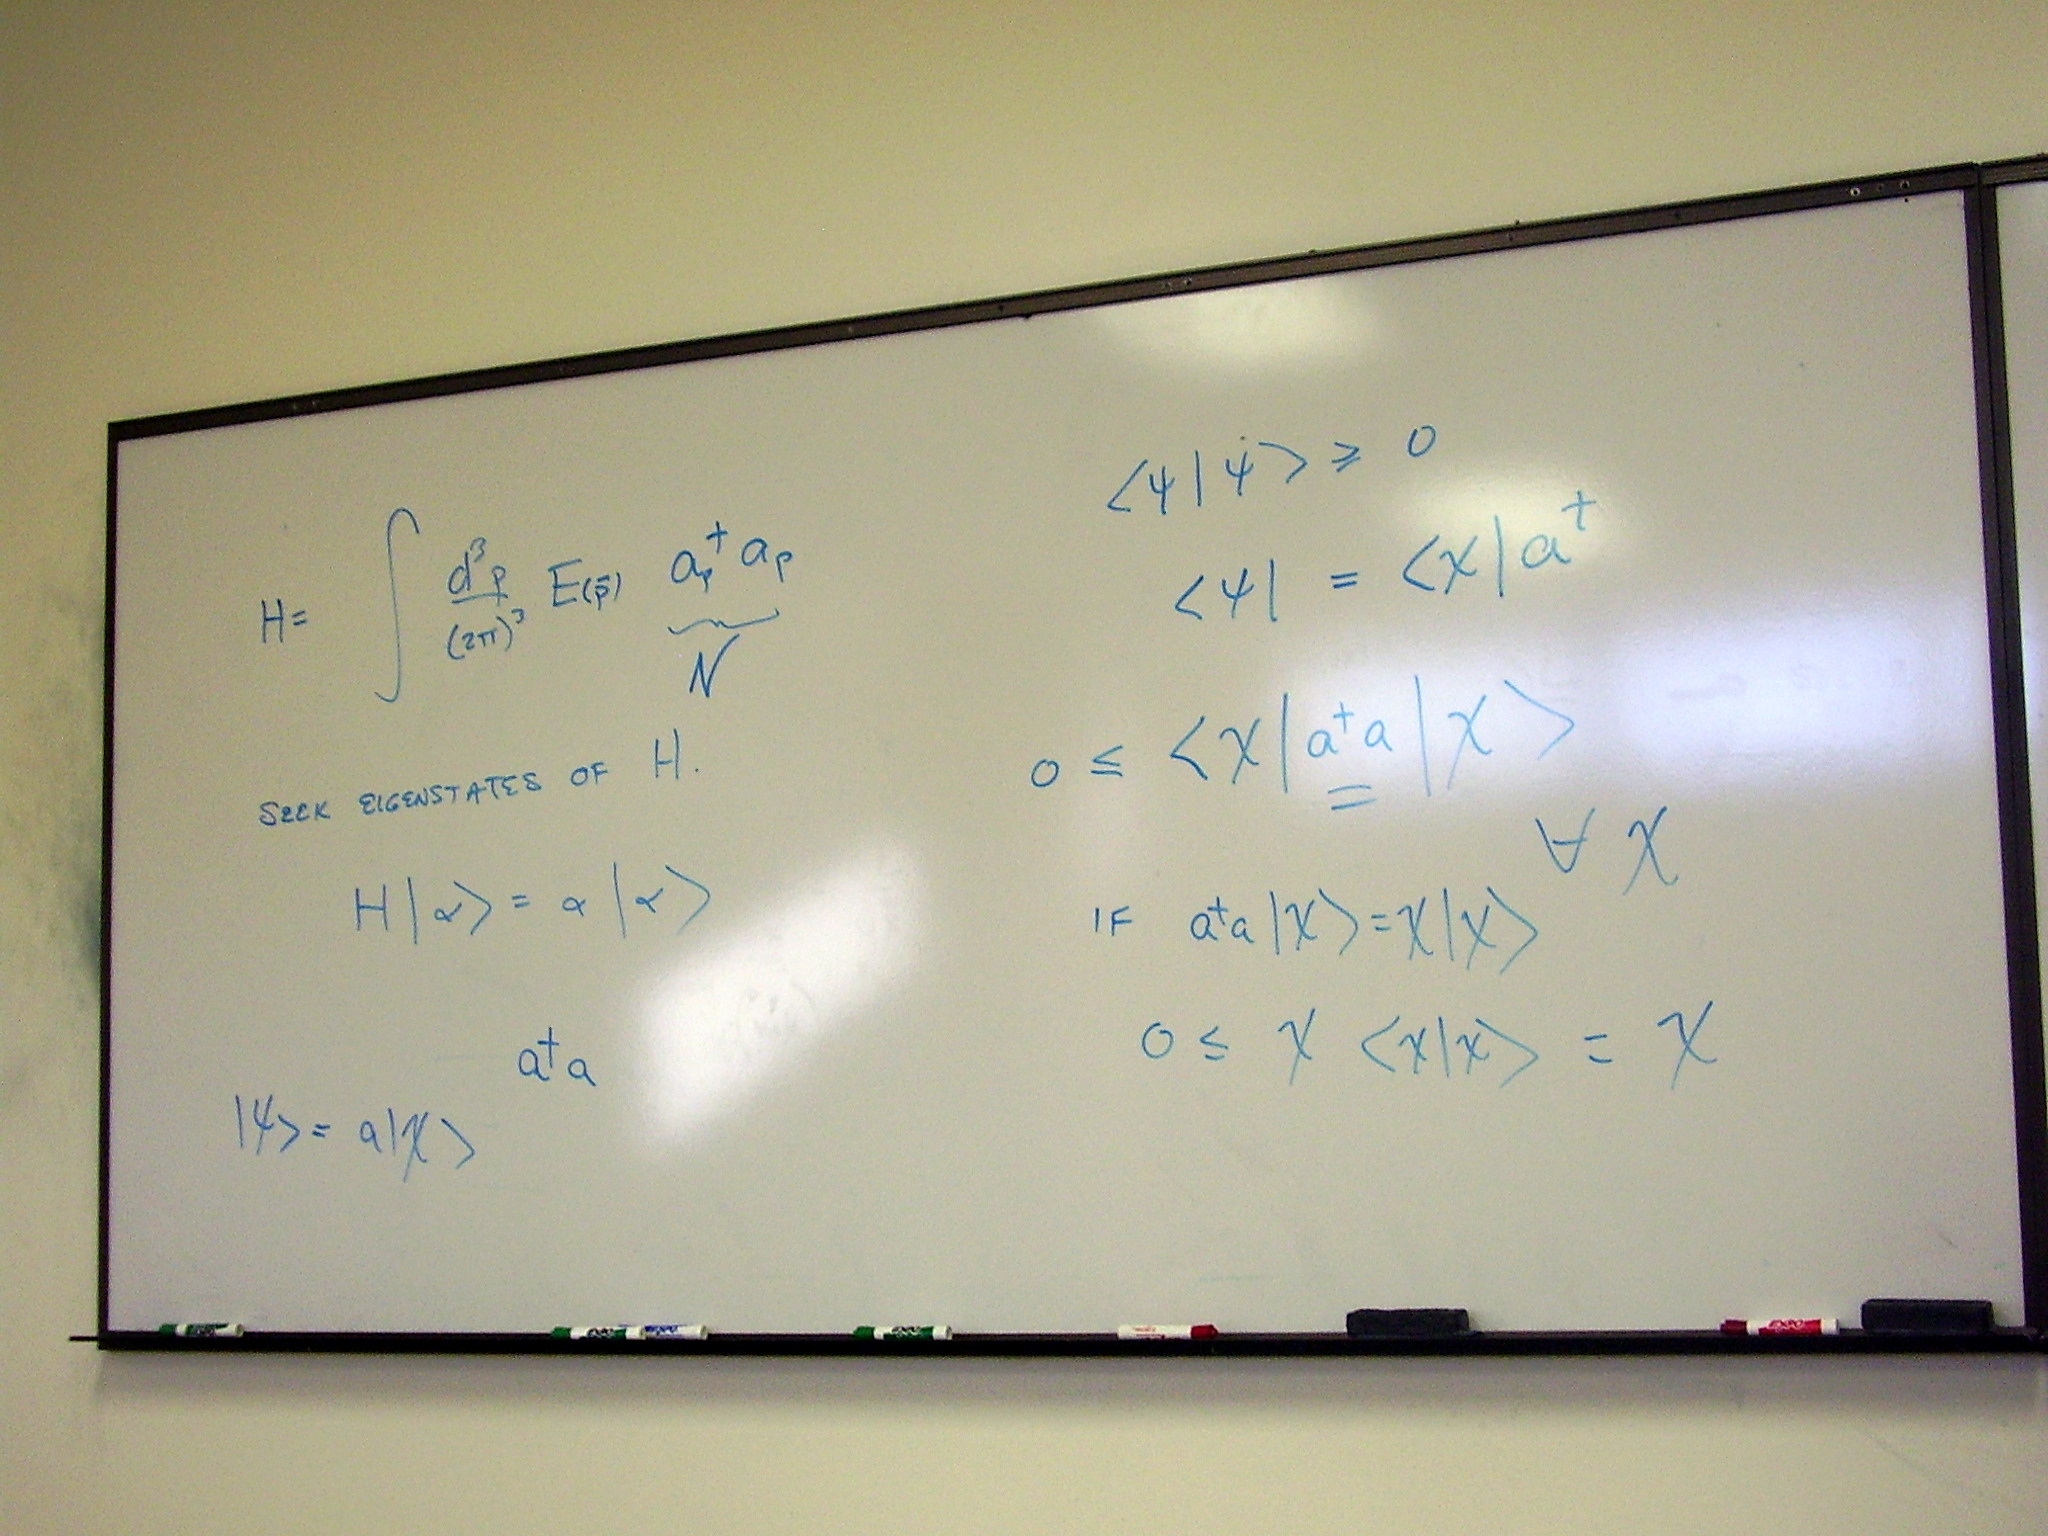 H = ∫ d³p/(2π)³ E(p̄) aₚ† aₚ
N
SEEK EIGENSTATES OF H.
H|α> = α|α>
a†a
|ψ> = a|χ>
<ψ|ψ> ≥ 0
<ψ| = <χ|a†
0 ≤ <χ|a†a|χ>
∀ χ
IF a†a|χ> = χ|χ>
0 ≤ χ <χ|χ> = χ
EXPO